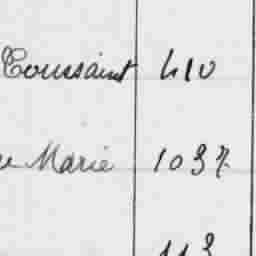 Toussaint 410
Marie 1037
113